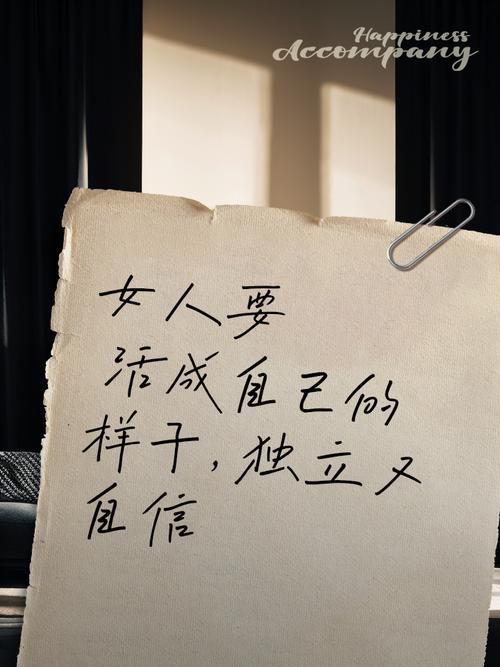 Happiness
Accompany
女人要
活成自己的
样子，独立又
自信